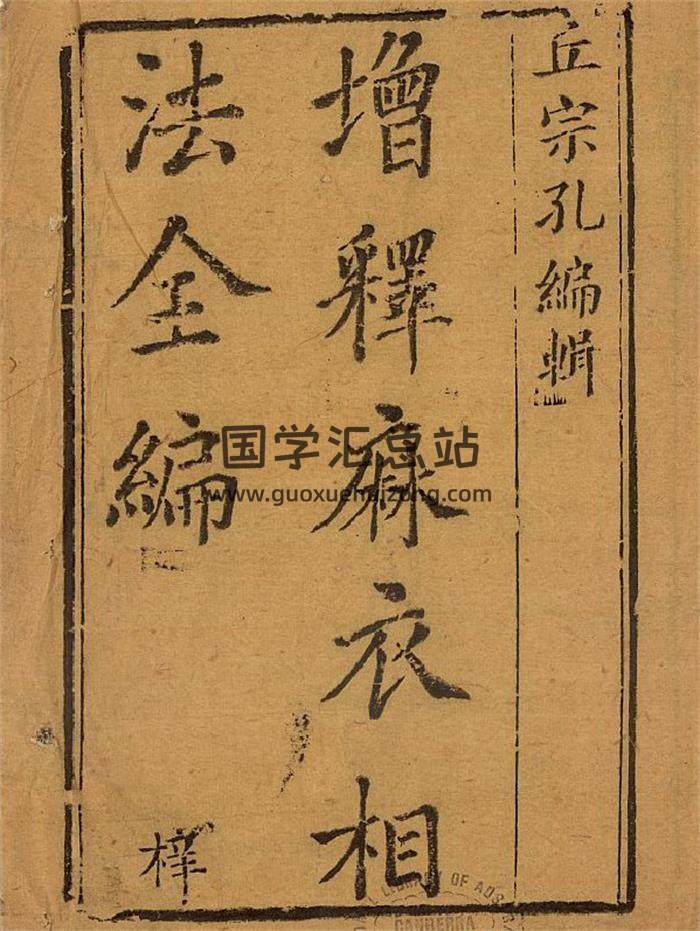 丘宗孔編輯
增釋麻衣相
法全編
梓
国学汇总站
www.guoxuehuizong.com
LIBRARY OF AUS
CANBERRA